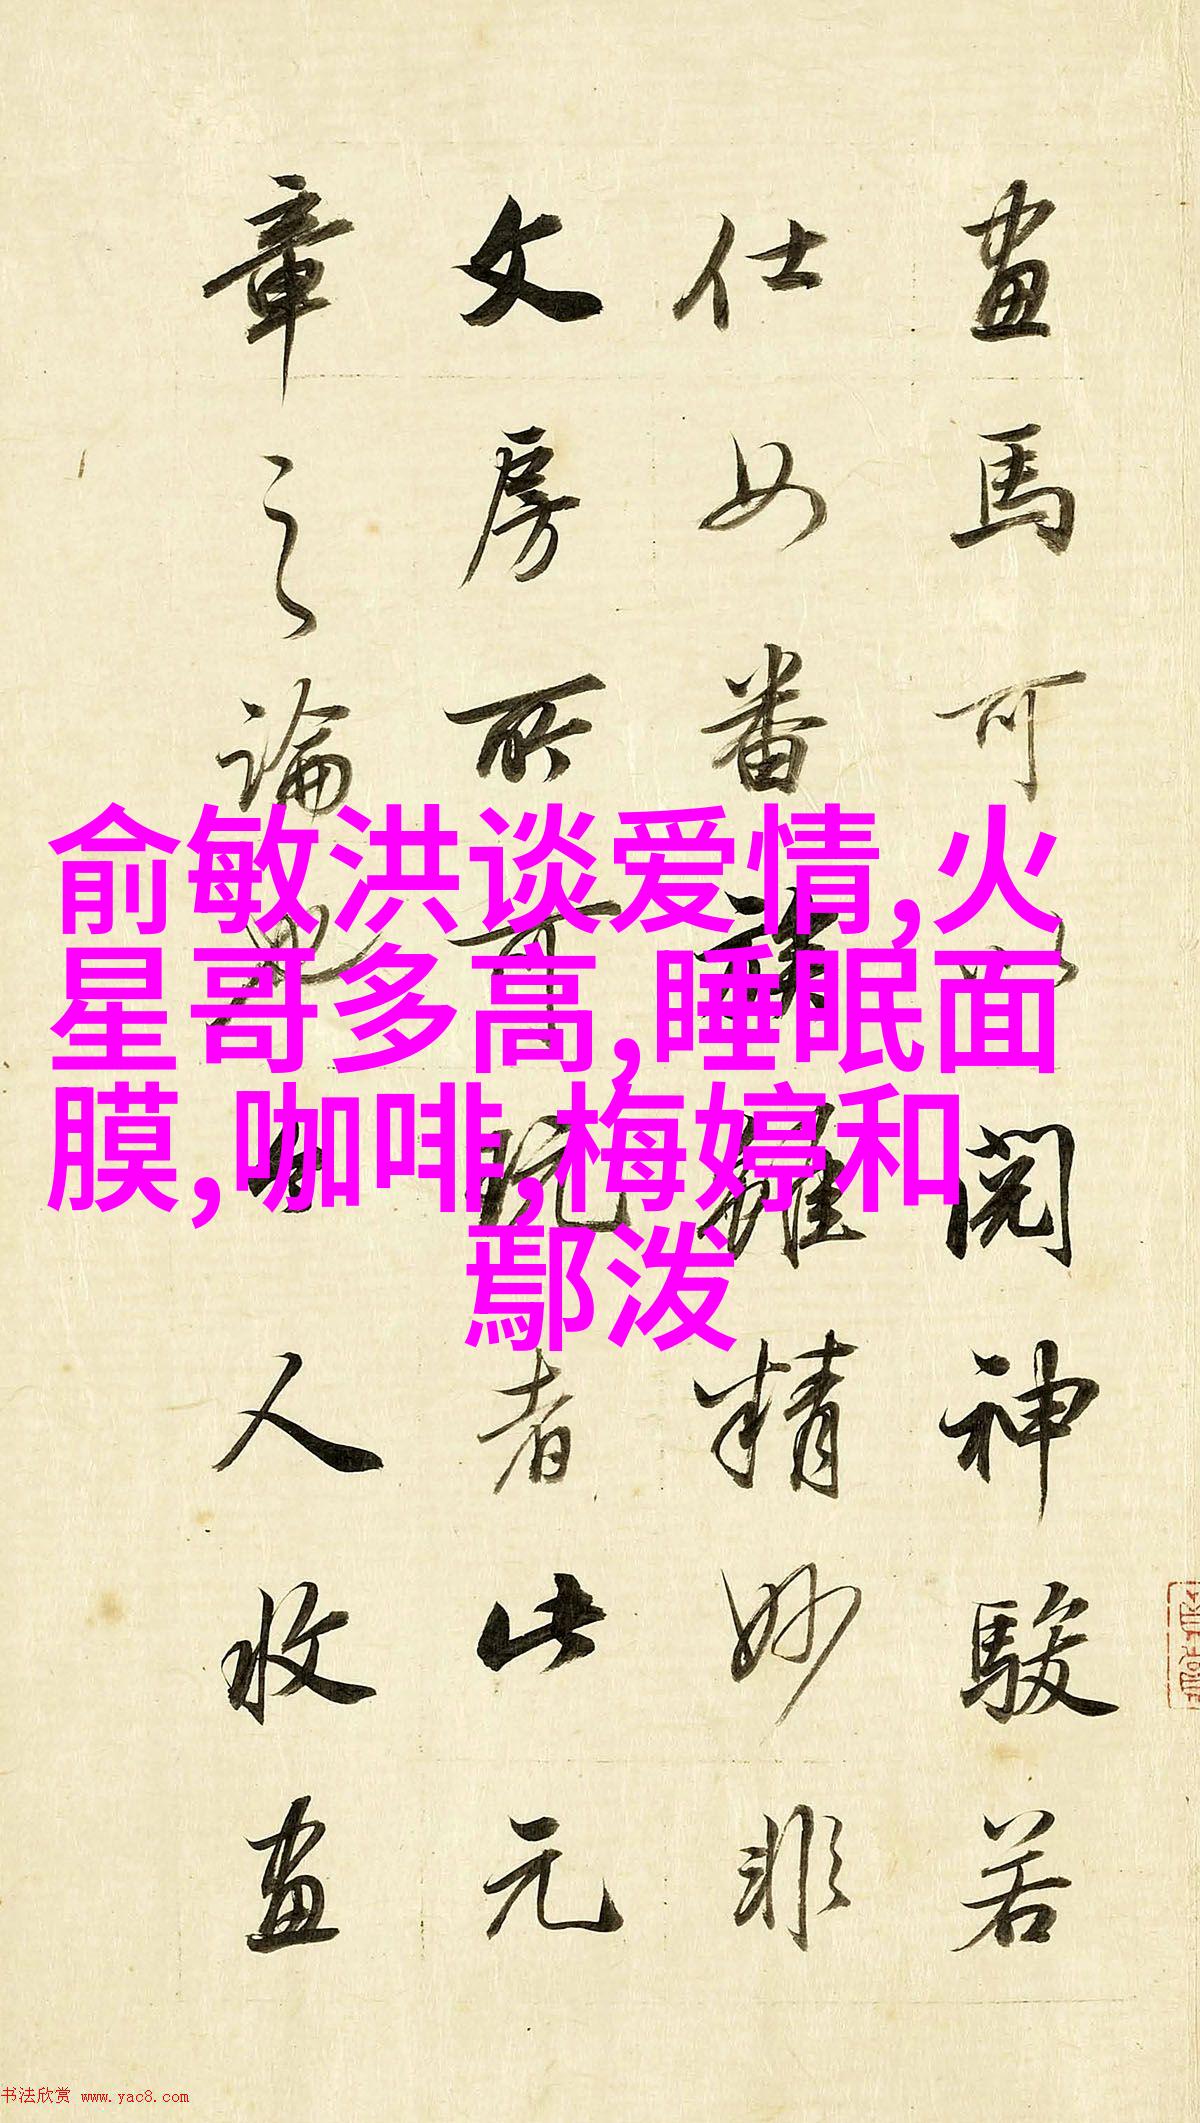 畫馬可以閱神駿若
仕女番族雖精妙非
文房所可玩者此元
章之論也人收畫
俞敏洪谈爱情,火
星哥多高,睡眠面
膜,咖啡,梅婷和
鄢泼
书法欣赏 www.yac8.com